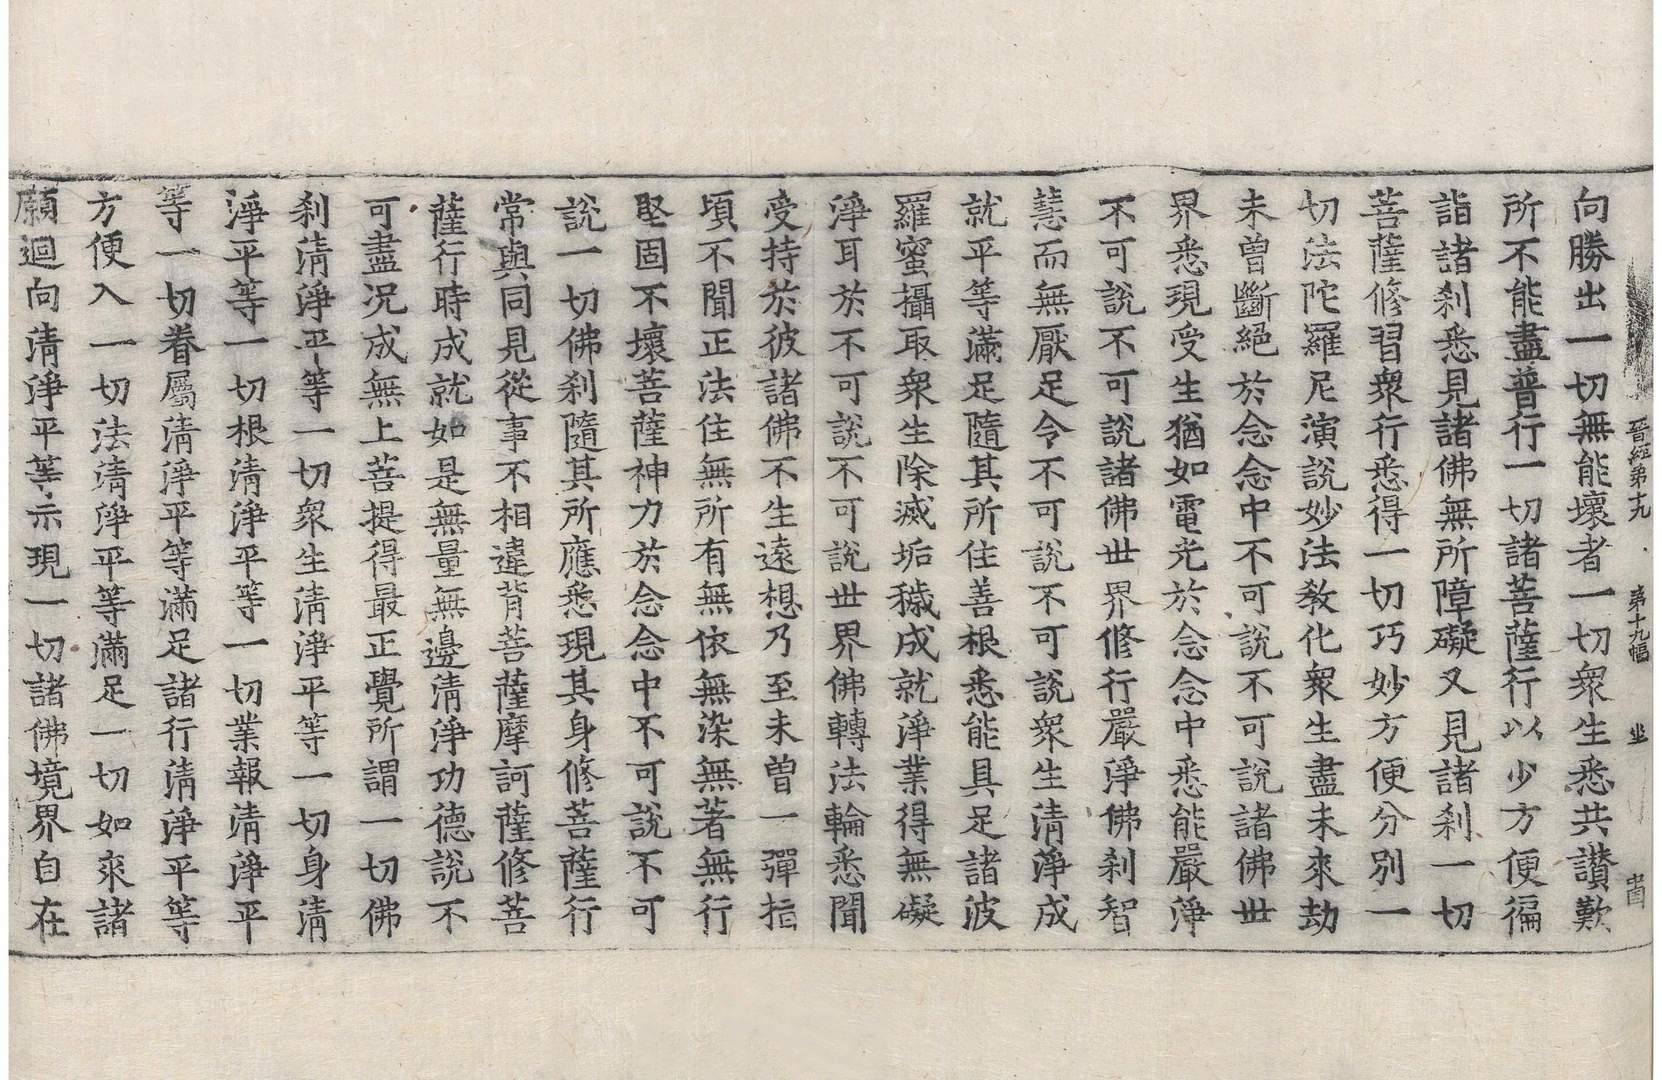 晉經第十九　第十九幅　坐
向勝出一切無能壞者一切眾生悉共讚歎
所不能盡普行一切諸菩薩行以少方便徧
詣諸刹悉見諸佛無所障礙又見諸刹一切
菩薩修習衆行悉得一切巧妙方便分別一
切法陀羅尼演說妙法教化衆生盡未來劫
未曾斷絕於念念中不可說不可說諸佛世
界悉現受生猶如電光於念念中悉能嚴淨
不可說不可說諸佛世界修行嚴淨佛刹智
慧而無厭足令不可說不可說衆生清淨成
就平等滿足隨其所住善根悉能具足諸波
羅蜜攝取衆生除滅垢穢成就淨業得無礙
淨耳於不可說不可說世界佛轉法輪悉聞
受持於彼諸佛不生遠想乃至未曾一彈指
頃不聞正法住無所有無依無染無著無行
堅固不壞菩薩神力於念念中不可說不可
說一切佛刹隨其所應悉現其身修菩薩行
常與同見從事不相違背菩薩摩訶薩修菩
薩行時成就如是無量無邊清淨功德說不
可盡况成無上菩提得最正覺所謂一切佛
刹清淨平等一切衆生清淨平等一切身清
淨平等一切根清淨平等一切業報清淨平
等一切眷屬清淨平等滿足諸行清淨平等
方便入一切法清淨平等滿足一切如來諸
願迴向清淨平等示現一切諸佛境界自在